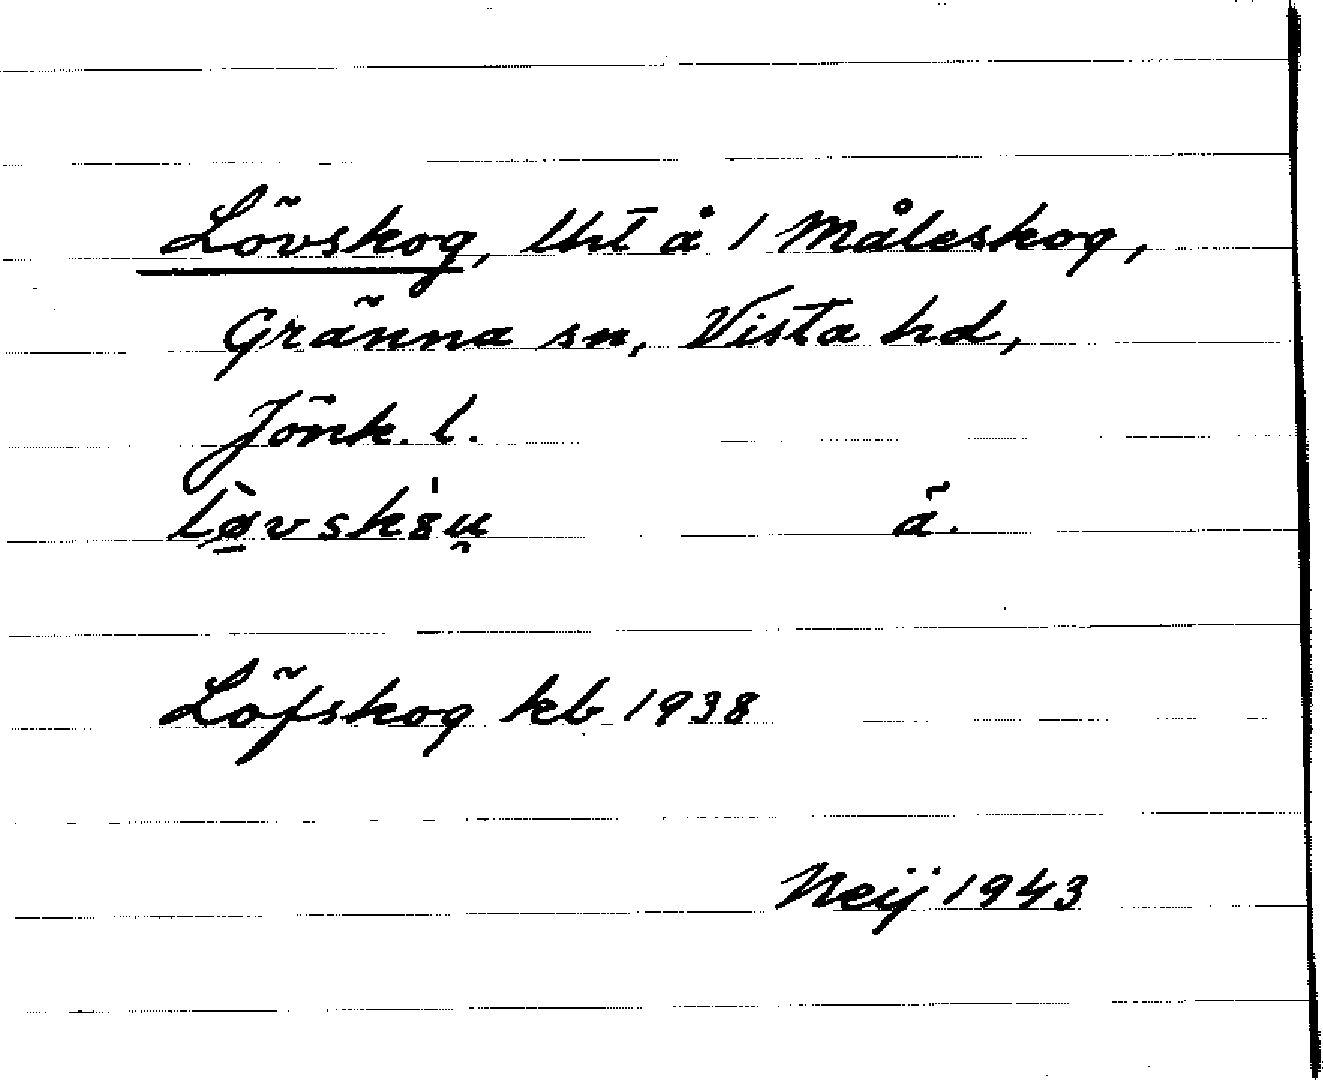 Lövskog, lht å 1 Måleskog,
Gränna sn, Vista hd,
Jönk. l.
ä.
Löfskog kb 1938
Neij 1943